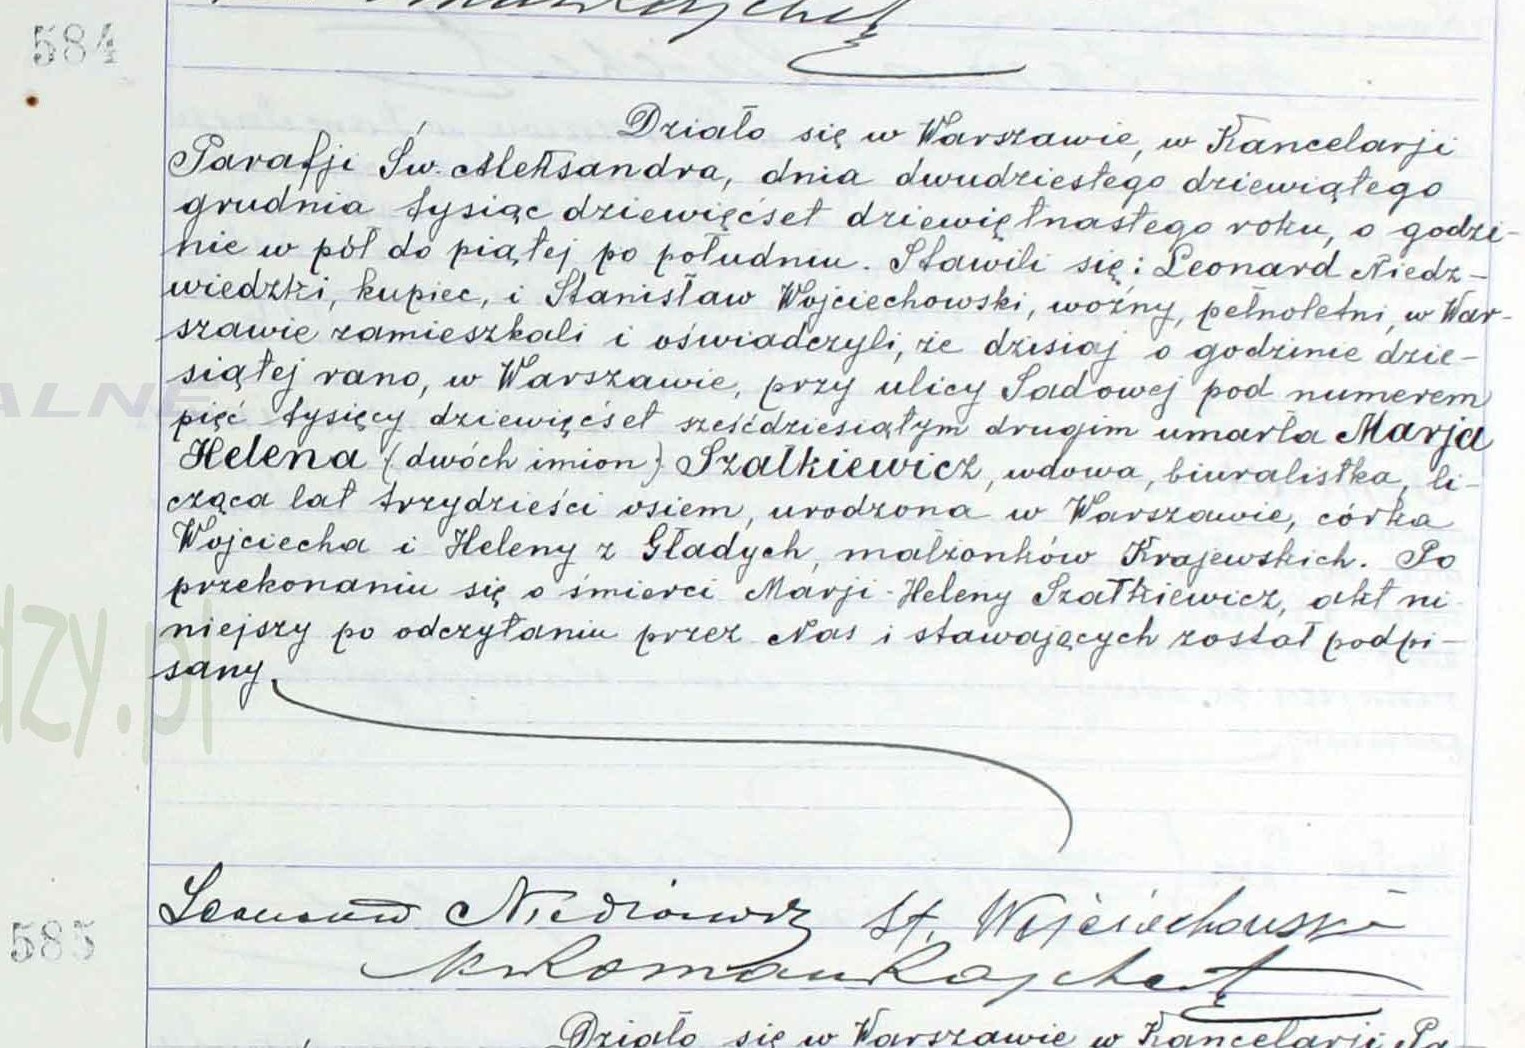 584
Działo się w Warszawie, w Kancelarji
Parafji Św. Aleksandra, dnia dwudziestego dziewiątego
grudnia tysiąc dziewięćset dziewiętnastego roku, o godzi-
nie w pół do piątej po południu. Stawili się: Leonard Niedz-
wiedzki, kupiec, i Stanisław Wojciechowski, woźny, pełnoletni, w War-
szawie zamieszkali i oświadczyli, że dzisiaj o godzinie dzie-
siątej rano, w Warszawie, przy ulicy Sadowej pod numerem
pięć tysięcy dziewięćset sześćdziesiątym drugim umarła Marja
Helena (dwóch imion) Szałkiewicz, wdowa, biuralistka, li-
cząca lat trzydzieści osiem, urodzona w Warszawie, córka
Wojciecha i Heleny z Gładych, małżonków Krajewskich. Po
przekonaniu się o śmierci Marji-Heleny Szałkiewicz, akt ni-
niejszy po odczytaniu przez Nas i stawających został podpi-
sany
ALNE
dzy.pl
Leonard St. Wojciechowski
585
Działo się w Warszawie w Kancelarji Pa-